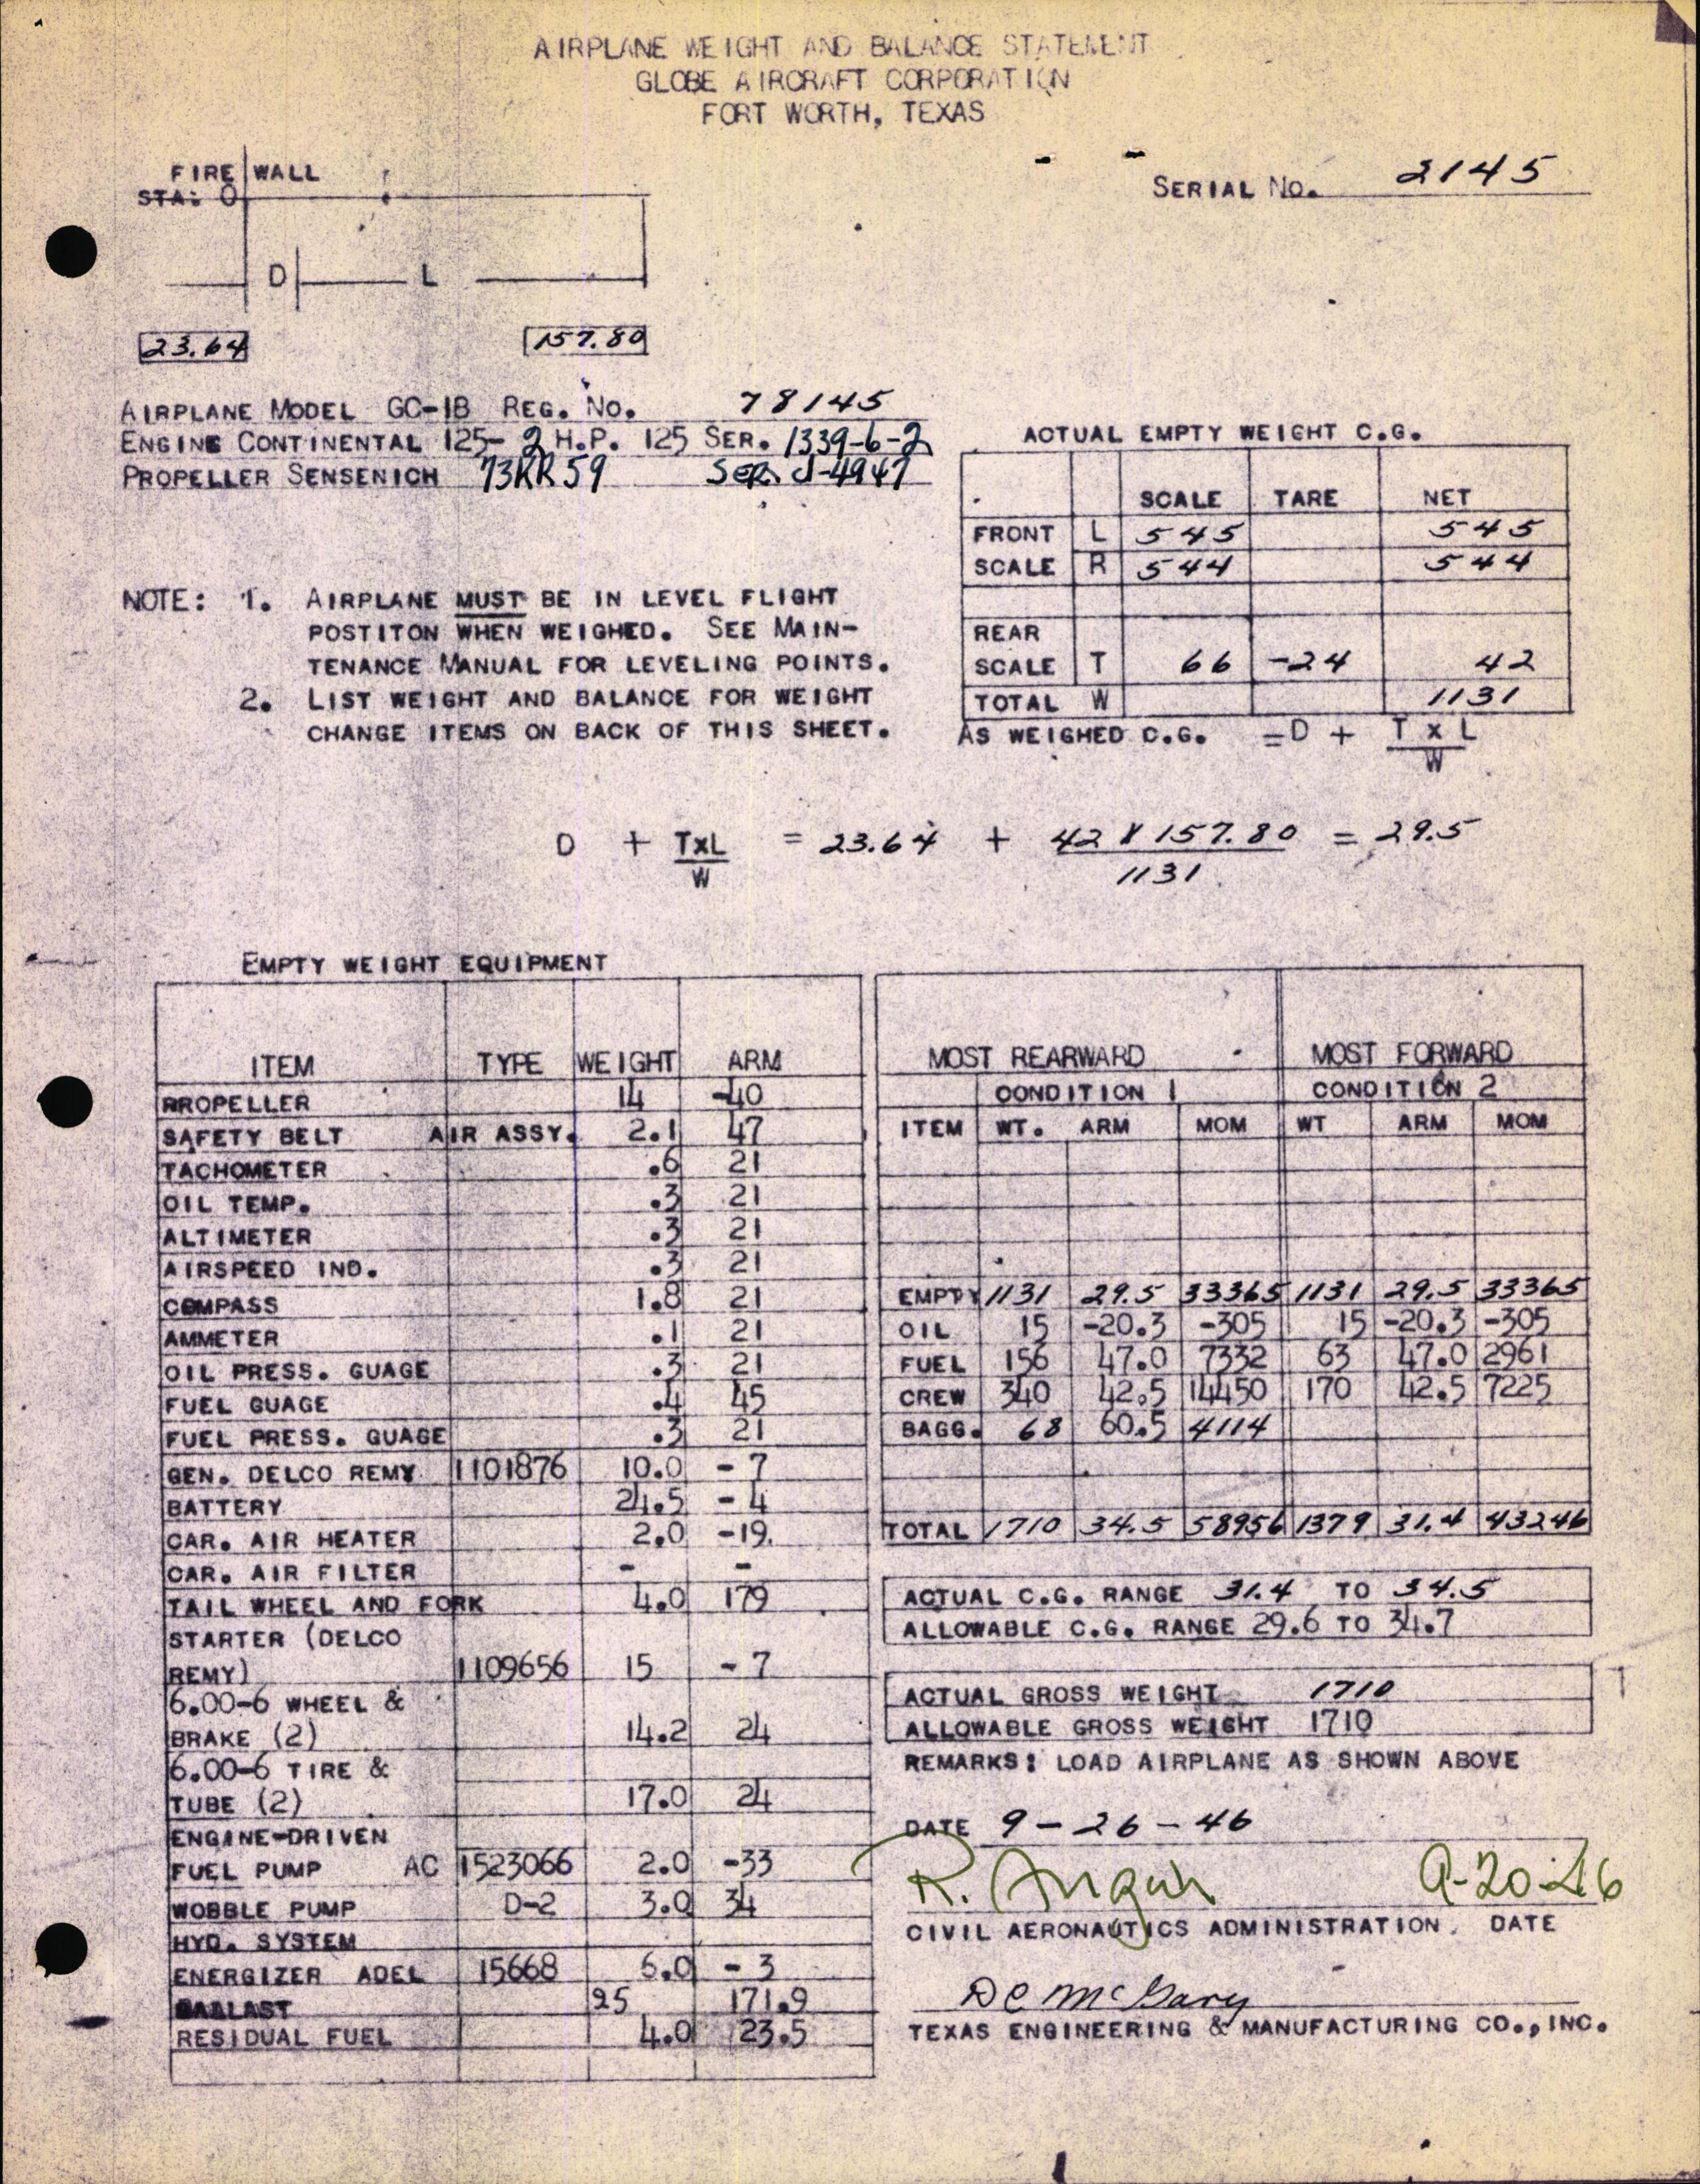 AIRPLANE WEIGHT AND BALANCE STATEMENT
GLOBE AIRCRAFT CORPORATION
FORT WORTH, TEXAS
FIRE WALL
STA: 0
SERIAL NO. 2145
D L
23.64 157.80
AIRPLANE MODEL GC-1B REG. NO. 78145
ENGINE CONTINENTAL 125-2 H.P. 125 SER. 1339-6-2
PROPELLER SENSENICH 73KR59 SER. J-4947
ACTUAL EMPTY WEIGHT C.G.
SCALE TARE NET
FRONT L 545 545
SCALE R 544 544
REAR
SCALE T 66 -24 42
TOTAL W 1131
AS WEIGHED C.G. = D + T x L
W
NOTE: 1. AIRPLANE MUST BE IN LEVEL FLIGHT
POSTITON WHEN WEIGHED. SEE MAIN-
TENANCE MANUAL FOR LEVELING POINTS.
2. LIST WEIGHT AND BALANCE FOR WEIGHT
CHANGE ITEMS ON BACK OF THIS SHEET.
D + TxL = 23.64 + 42 X 157.80 = 29.5
W 1131
EMPTY WEIGHT EQUIPMENT
ITEM TYPE WEIGHT ARM
PROPELLER 14 -40
SAFETY BELT AIR ASSY. 2.1 47
TACHOMETER .6 21
OIL TEMP. .3 21
ALTIMETER .3 21
AIRSPEED IND. .3 21
COMPASS 1.8 21
AMMETER .1 21
OIL PRESS. GUAGE .3 21
FUEL GUAGE .4 45
FUEL PRESS. GUAGE .3 21
GEN. DELCO REMY 1101876 10.0 - 7
BATTERY 24.5 - 4
CAR. AIR HEATER 2.0 -19.
CAR. AIR FILTER - -
TAIL WHEEL AND FORK 4.0 179
STARTER (DELCO
REMY) 1109656 15 - 7
6.00-6 WHEEL &
BRAKE (2) 14.2 24
6.00-6 TIRE &
TUBE (2) 17.0 24
ENGINE-DRIVEN
FUEL PUMP AC 1523066 2.0 -33
WOBBLE PUMP D-2 3.0 34
HYD. SYSTEM
ENERGIZER ADEL 15668 6.0 - 3
BALLAST 25 171.9
RESIDUAL FUEL 4.0 23.5
MOST REARWARD MOST FORWARD
CONDITION 1 CONDITION 2
ITEM WT. ARM MOM WT ARM MOM
EMPTY 1131 29.5 33365 1131 29.5 33365
OIL 15 -20.3 -305 15 -20.3 -305
FUEL 156 47.0 7332 63 47.0 2961
CREW 340 42.5 14450 170 42.5 7225
BAGG. 68 60.5 4114
TOTAL 1710 34.5 58956 1379 31.4 43246
ACTUAL C.G. RANGE 31.4 TO 34.5
ALLOWABLE C.G. RANGE 29.6 TO 34.7
ACTUAL GROSS WEIGHT 1710
ALLOWABLE GROSS WEIGHT 1710
REMARKS: LOAD AIRPLANE AS SHOWN ABOVE
DATE 9-26-46
R. 9-20-46
CIVIL AERONAUTICS ADMINISTRATION. DATE
De McGary
TEXAS ENGINEERING & MANUFACTURING CO., INC.